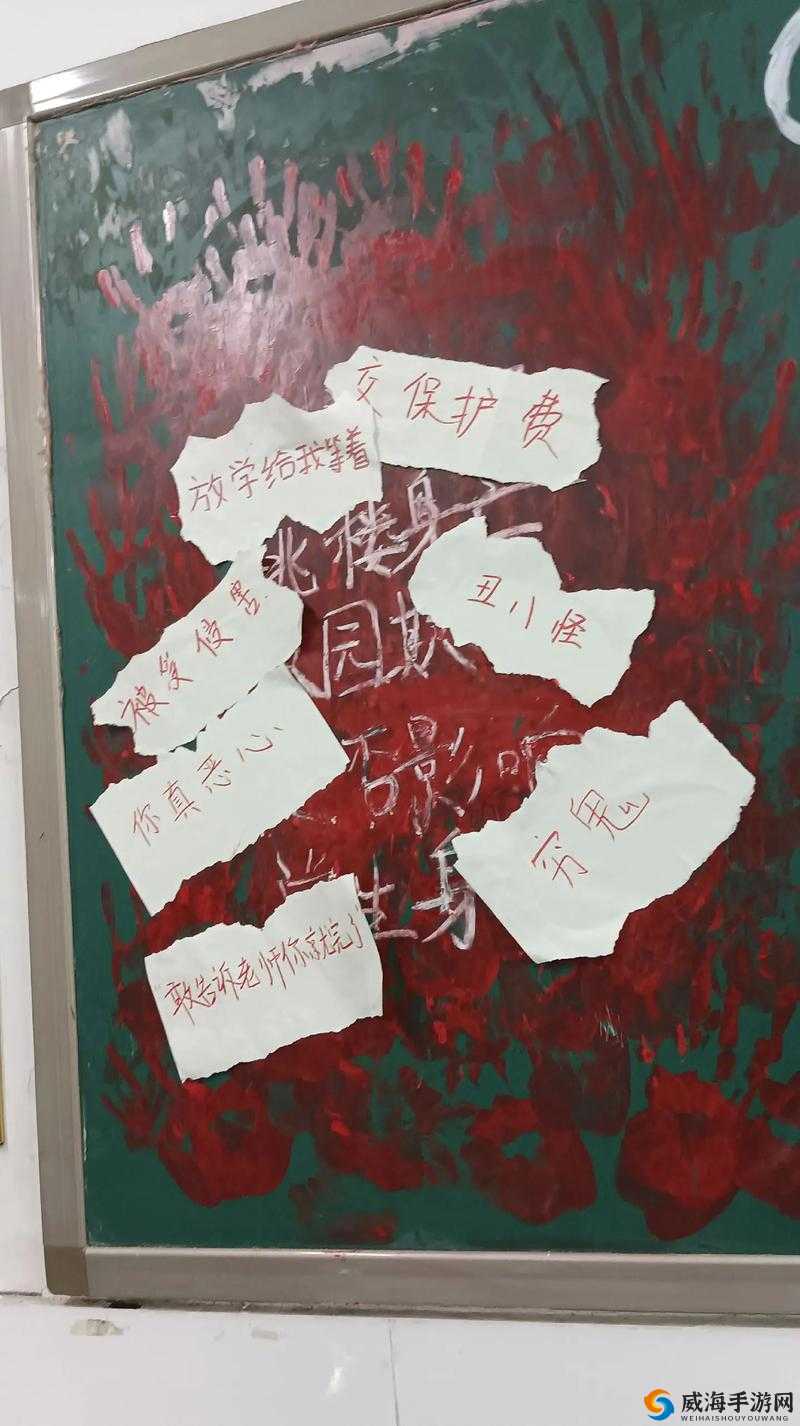 交保护费
放学给我等着
跳楼身亡
丑八怪
被受侵害
园欺
你真恶心
否影响
穷鬼
学生身
敢告诉老师你就完了
威海手游网
WEIHAISHOUYOUWANG